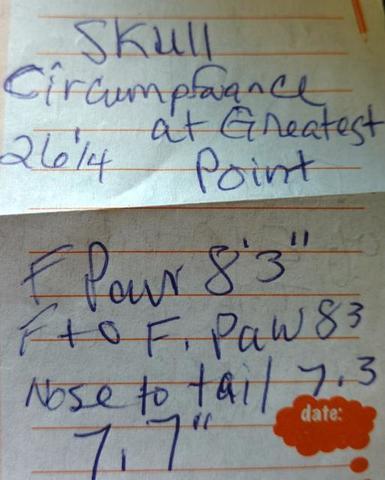 Skull
Circumpfarance
at Greatest
26 1/4 Point
F Paw 8'3"
F to F. Paw 83
Nose to tail 7.3
date:
7,7"